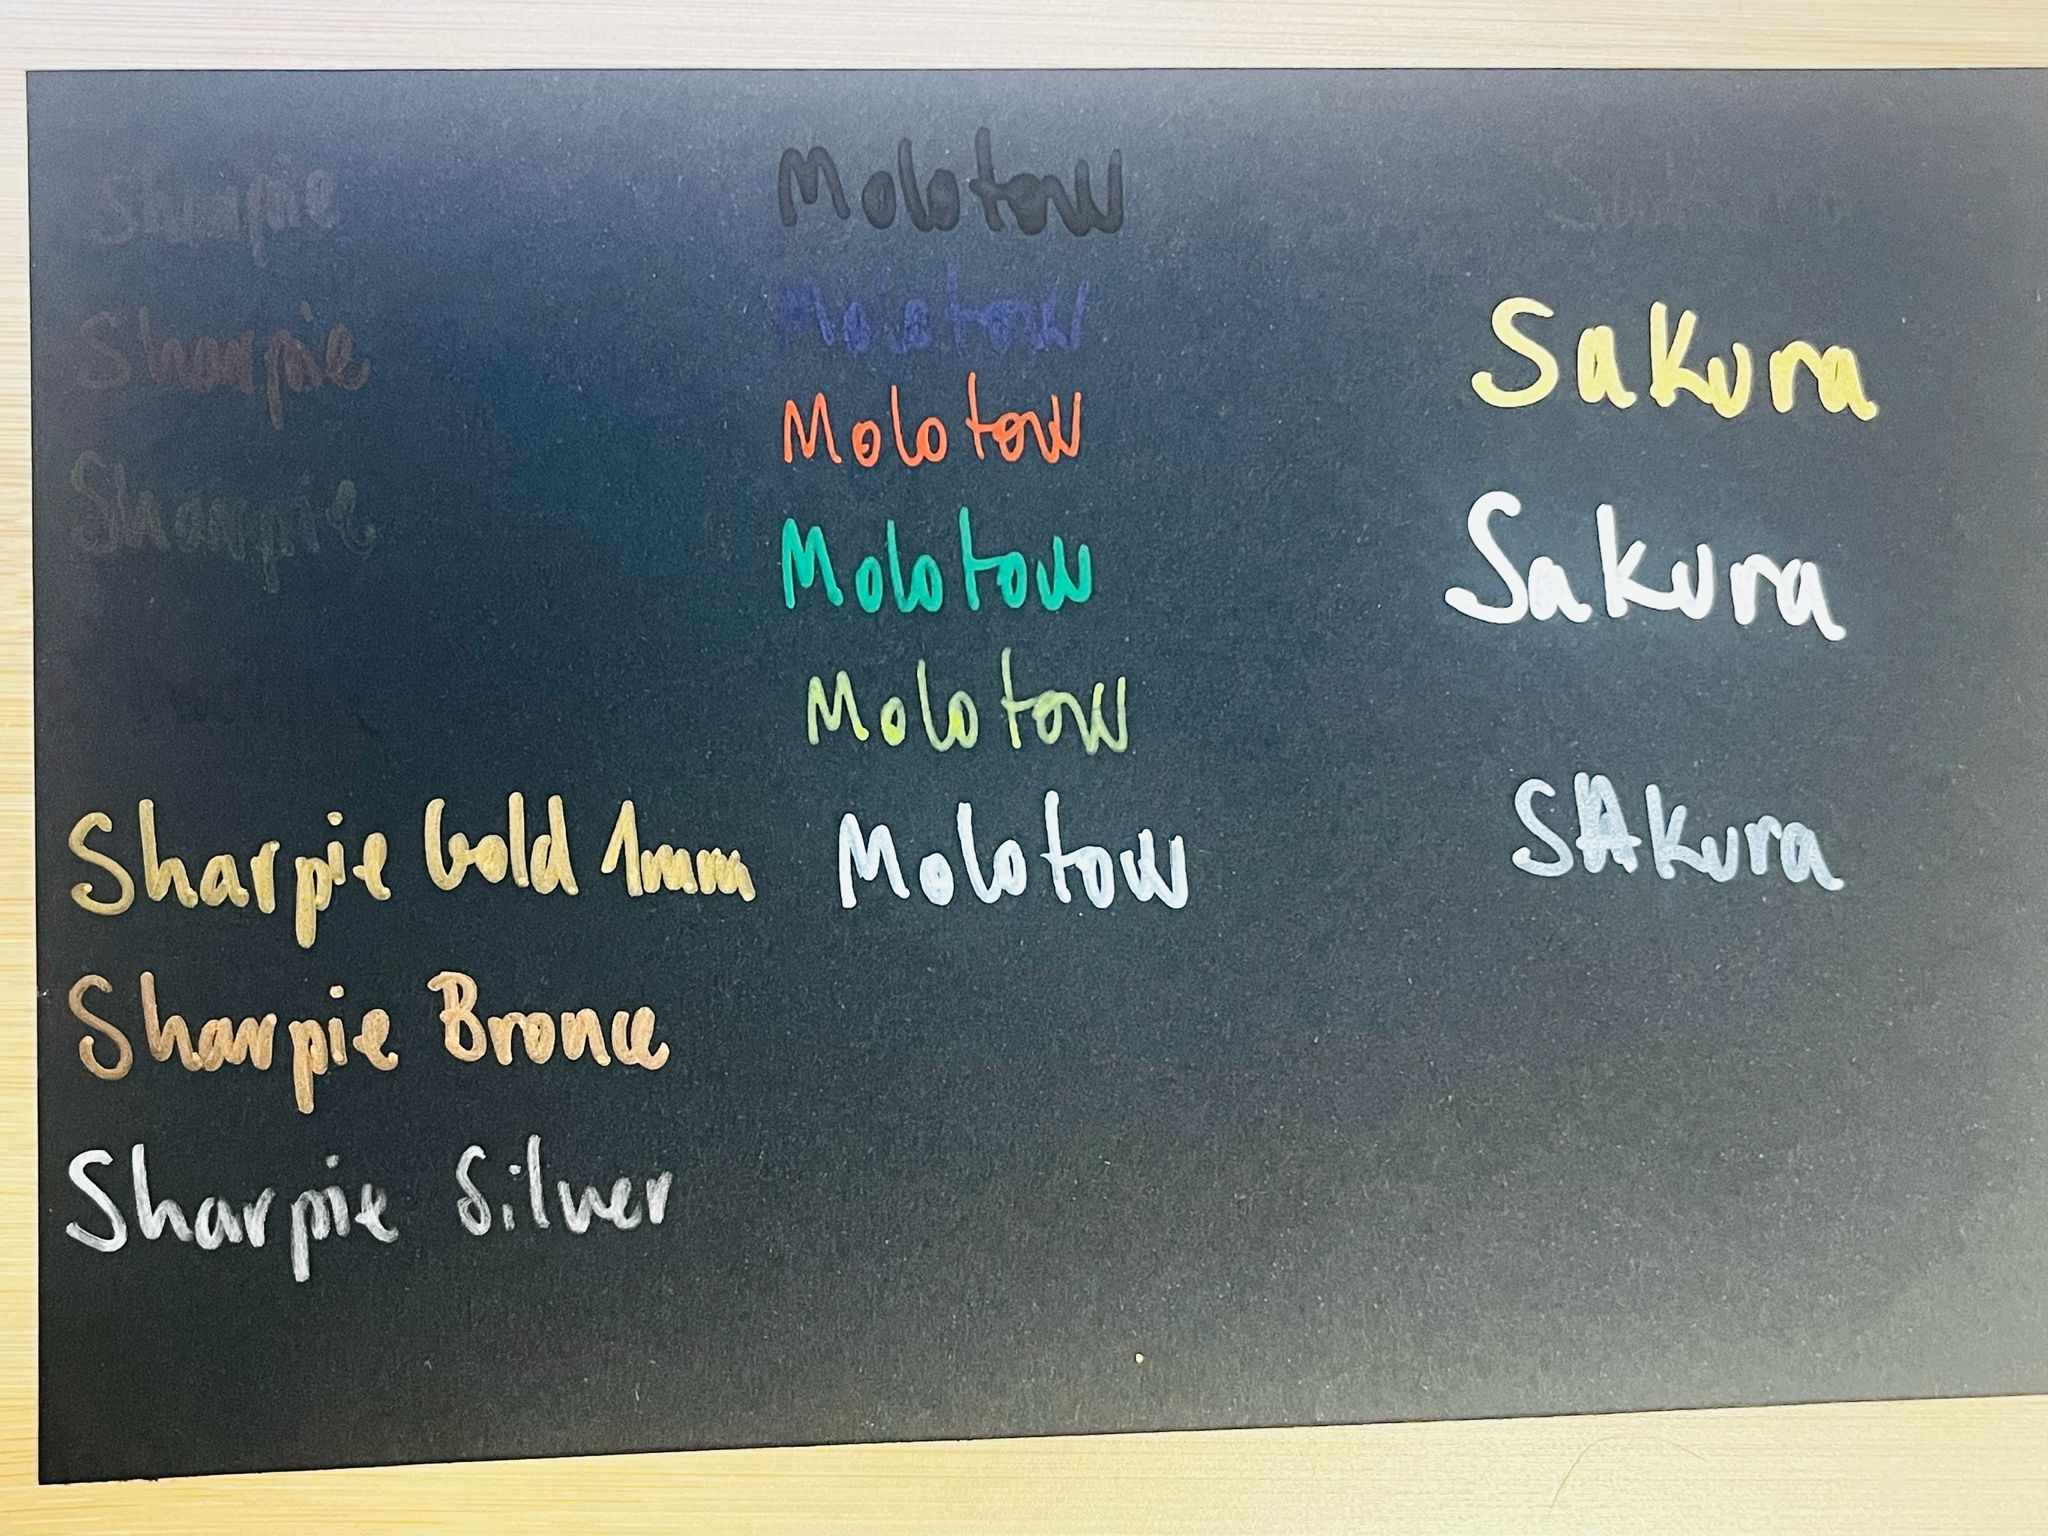 Sharpie
Sharpie
Sharpie
Sharpie Gold 1mm
Sharpie Bronce
Sharpie Silver
Molotow
Molotow
Molotow
Molotow
Molotow
Molotow
Sakura
Sakura
SAkura